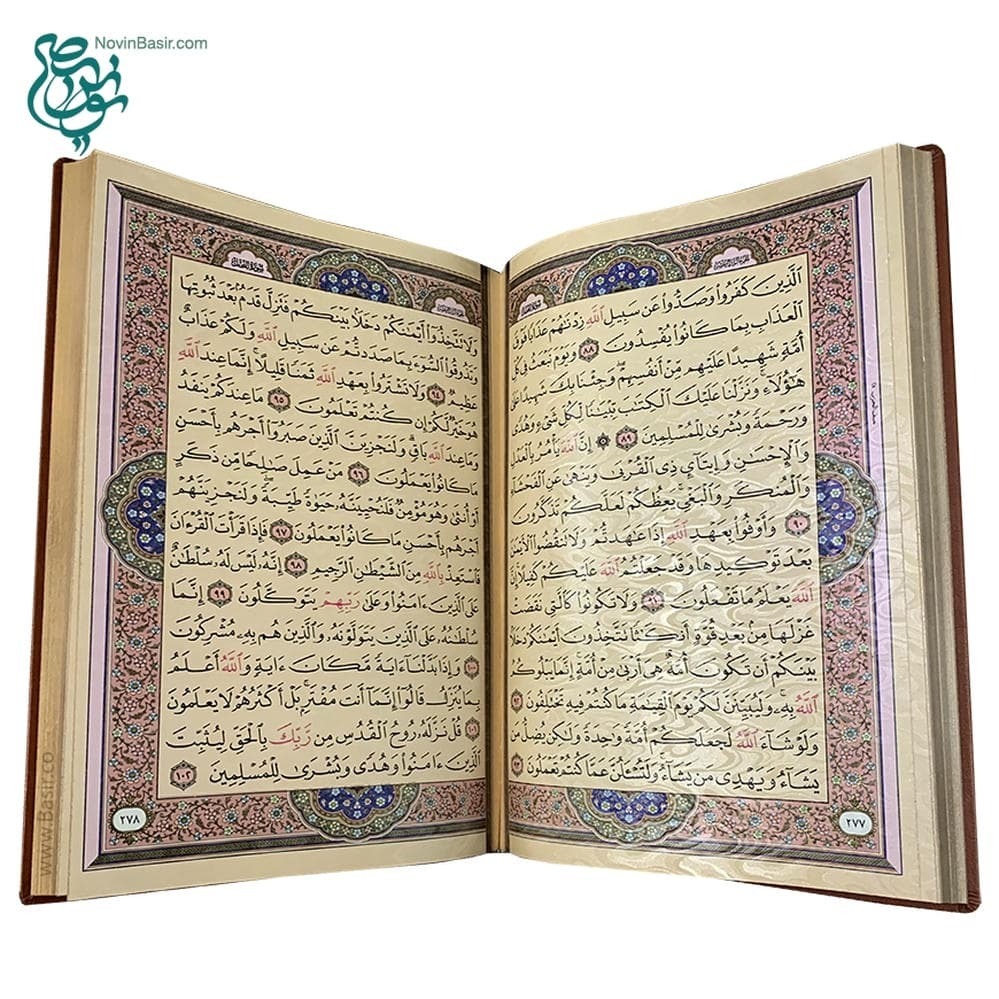 NovinBasir.com
ٱلَّذِينَ كَفَرُوا۟ وَصَدُّوا۟ عَن سَبِيلِ ٱللَّهِ زِدْنَٰهُمْ عَذَابًا فَوْقَ
ٱلْعَذَابِ بِمَا كَانُوا۟ يُفْسِدُونَ ٨٨ وَيَوْمَ نَبْعَثُ فِى كُلِّ
أُمَّةٍ شَهِيدًا عَلَيْهِم مِّنْ أَنفُسِهِمْ ۖ وَجِئْنَا بِكَ شَهِيدًا عَلَىٰ
هَٰٓؤُلَآءِ ۚ وَنَزَّلْنَا عَلَيْكَ ٱلْكِتَٰبَ تِبْيَٰنًا لِّكُلِّ شَىْءٍ وَهُدًى
وَرَحْمَةً وَبُشْرَىٰ لِلْمُسْلِمِينَ ٨٩ ۞ إِنَّ ٱللَّهَ يَأْمُرُ بِٱلْعَدْلِ
وَٱلْإِحْسَٰنِ وَإِيتَآئِ ذِى ٱلْقُرْبَىٰ وَيَنْهَىٰ عَنِ ٱلْفَحْشَآءِ
وَٱلْمُنكَرِ وَٱلْبَغْىِ ۚ يَعِظُكُمْ لَعَلَّكُمْ تَذَكَّرُونَ
٩٠ وَأَوْفُوا۟ بِعَهْدِ ٱللَّهِ إِذَا عَٰهَدتُّمْ وَلَا تَنقُضُوا۟ ٱلْأَيْمَٰنَ
بَعْدَ تَوْكِيدِهَا وَقَدْ جَعَلْتُمُ ٱللَّهَ عَلَيْكُمْ كَفِيلًا ۚ إِنَّ
ٱللَّهَ يَعْلَمُ مَا تَفْعَلُونَ ٩١ وَلَا تَكُونُوا۟ كَٱلَّتِى نَقَضَتْ
غَزْلَهَا مِنۢ بَعْدِ قُوَّةٍ أَنكَٰثًا تَتَّخِذُونَ أَيْمَٰنَكُمْ دَخَلًۢا
بَيْنَكُمْ أَن تَكُونَ أُمَّةٌ هِىَ أَرْبَىٰ مِنْ أُمَّةٍ ۚ إِنَّمَا يَبْلُوكُمُ
ٱللَّهُ بِهِۦ ۚ وَلَيُبَيِّنَنَّ لَكُمْ يَوْمَ ٱلْقِيَٰمَةِ مَا كُنتُمْ فِيهِ تَخْتَلِفُونَ ٩٢
وَلَوْ شَآءَ ٱللَّهُ لَجَعَلَكُمْ أُمَّةً وَٰحِدَةً وَلَٰكِن يُضِلُّ مَن
يَشَآءُ وَيَهْدِى مَن يَشَآءُ ۚ وَلَتُسْـَٔلُنَّ عَمَّا كُنتُمْ تَعْمَلُونَ ٩٣
٢٧٧
وَلَا تَتَّخِذُوٓا۟ أَيْمَٰنَكُمْ دَخَلًۢا بَيْنَكُمْ فَتَزِلَّ قَدَمٌۢ بَعْدَ ثُبُوتِهَا
وَتَذُوقُوا۟ ٱلسُّوٓءَ بِمَا صَدَدتُّمْ عَن سَبِيلِ ٱللَّهِ ۖ وَلَكُمْ عَذَابٌ
عَظِيمٌ ٩٤ وَلَا تَشْتَرُوا۟ بِعَهْدِ ٱللَّهِ ثَمَنًا قَلِيلًا ۚ إِنَّمَا عِندَ ٱللَّهِ
هُوَ خَيْرٌ لَّكُمْ إِن كُنتُمْ تَعْلَمُونَ ٩٥ مَا عِندَكُمْ يَنفَدُ ۖ
وَمَا عِندَ ٱللَّهِ بَاقٍ ۗ وَلَنَجْزِيَنَّ ٱلَّذِينَ صَبَرُوٓا۟ أَجْرَهُم بِأَحْسَنِ
مَا كَانُوا۟ يَعْمَلُونَ ٩٦ مَنْ عَمِلَ صَٰلِحًا مِّن ذَكَرٍ
أَوْ أُنثَىٰ وَهُوَ مُؤْمِنٌ فَلَنُحْيِيَنَّهُۥ حَيَوٰةً طَيِّبَةً ۖ وَلَنَجْزِيَنَّهُمْ
أَجْرَهُم بِأَحْسَنِ مَا كَانُوا۟ يَعْمَلُونَ ٩٧ فَإِذَا قَرَأْتَ ٱلْقُرْءَانَ
فَٱسْتَعِذْ بِٱللَّهِ مِنَ ٱلشَّيْطَٰنِ ٱلرَّجِيمِ ٩٨ إِنَّهُۥ لَيْسَ لَهُۥ سُلْطَٰنٌ
عَلَى ٱلَّذِينَ ءَامَنُوا۟ وَعَلَىٰ رَبِّهِمْ يَتَوَكَّلُونَ ٩٩ إِنَّمَا
سُلْطَٰنُهُۥ عَلَى ٱلَّذِينَ يَتَوَلَّوْنَهُۥ وَٱلَّذِينَ هُم بِهِۦ مُشْرِكُونَ
١٠٠ وَإِذَا بَدَّلْنَآ ءَايَةً مَّكَانَ ءَايَةٍ ۙ وَٱللَّهُ أَعْلَمُ
بِمَا يُنَزِّلُ قَالُوٓا۟ إِنَّمَآ أَنتَ مُفْتَرٍۭ ۚ بَلْ أَكْثَرُهُمْ لَا يَعْلَمُونَ
١٠١ قُلْ نَزَّلَهُۥ رُوحُ ٱلْقُدُسِ مِن رَّبِّكَ بِٱلْحَقِّ لِيُثَبِّتَ
ٱلَّذِينَ ءَامَنُوا۟ وَهُدًى وَبُشْرَىٰ لِلْمُسْلِمِينَ ١٠٢
٢٧٨
www.Basir.co